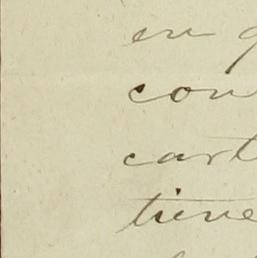 en
con
cart
tiene